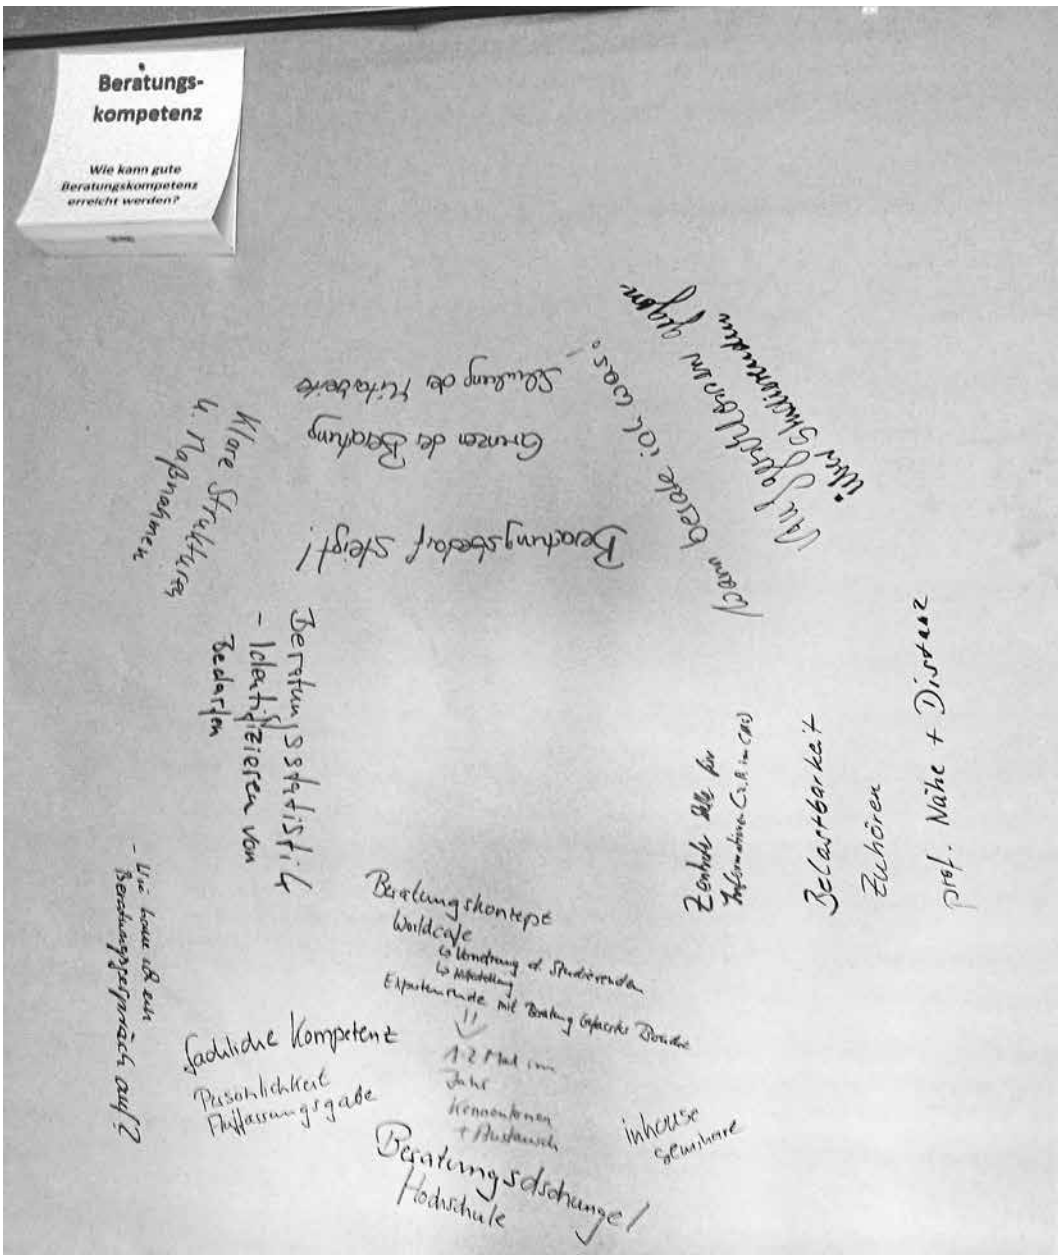 Beratungs-
kompetenz
Wie kann gute
Beratungskompetenz
erreicht werden?
Schulung der Mitarbeiter
Grenzen der Beratung
Beratungsbedarf steigt!
Wann berate ich was?
Aufgeschlossen gegen-
über Studierenden
Klare Strukturen
u. Maßnahmen
Beratungsstatistik
- Identifizieren von
Bedarfen
- Wie baue ich ein
Beratungsgespräch auf?
Zentrale Stelle für
Informationen
Belastbarkeit
Zuhören
prof. Nähe + Distanz
Beratungskonzept
Worldcafe
↳ Vernetzung d. Studierenden
↳
Expertenrunde mit Beratung
1-2 Mal im
Jahr
Kennenlernen
+ Austausch
fachliche Kompetenz
Persönlichkeit
Auffassungsgabe
inhouse
seminare
Beratungsdschungel
Hochschule